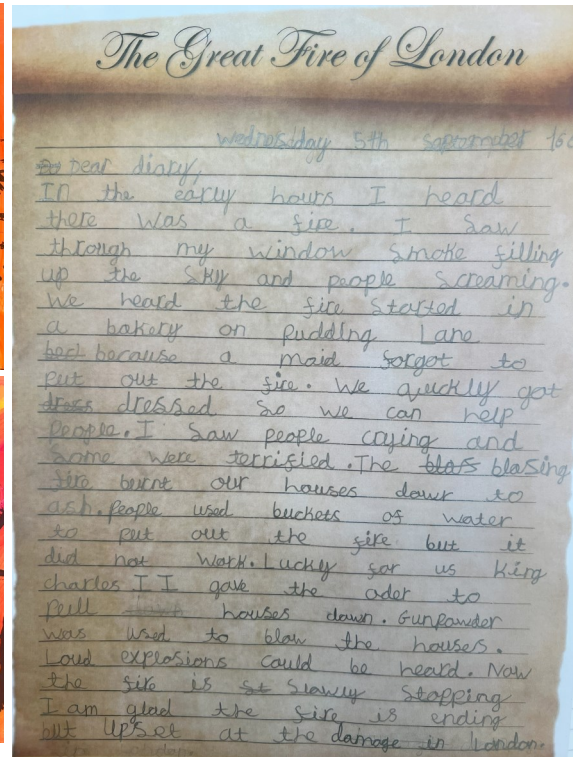 The Great Fire of London
Wednesday 5th September
Dear diary,
In the early hours I heard
there was a fire. I saw
through my window smoke filling
up the sky and people screaming.
We heard the fire started in
a bakery on Pudding Lane
because a maid forgot to
put out the fire. We quickly got
dressed so we can help
people. I saw people crying and
some were terrified. The blasing
fire burnt our houses down to
ash. People used buckets of water
to put out the fire but it
did not work. Luckly for us King
charles II gave the oder to
pull houses down. Gunpowder
was used to blow the houses.
Loud explosions could be heard. Now
the fire is slowly stopping
I am glad the fire is ending
but upset at the damage in London.